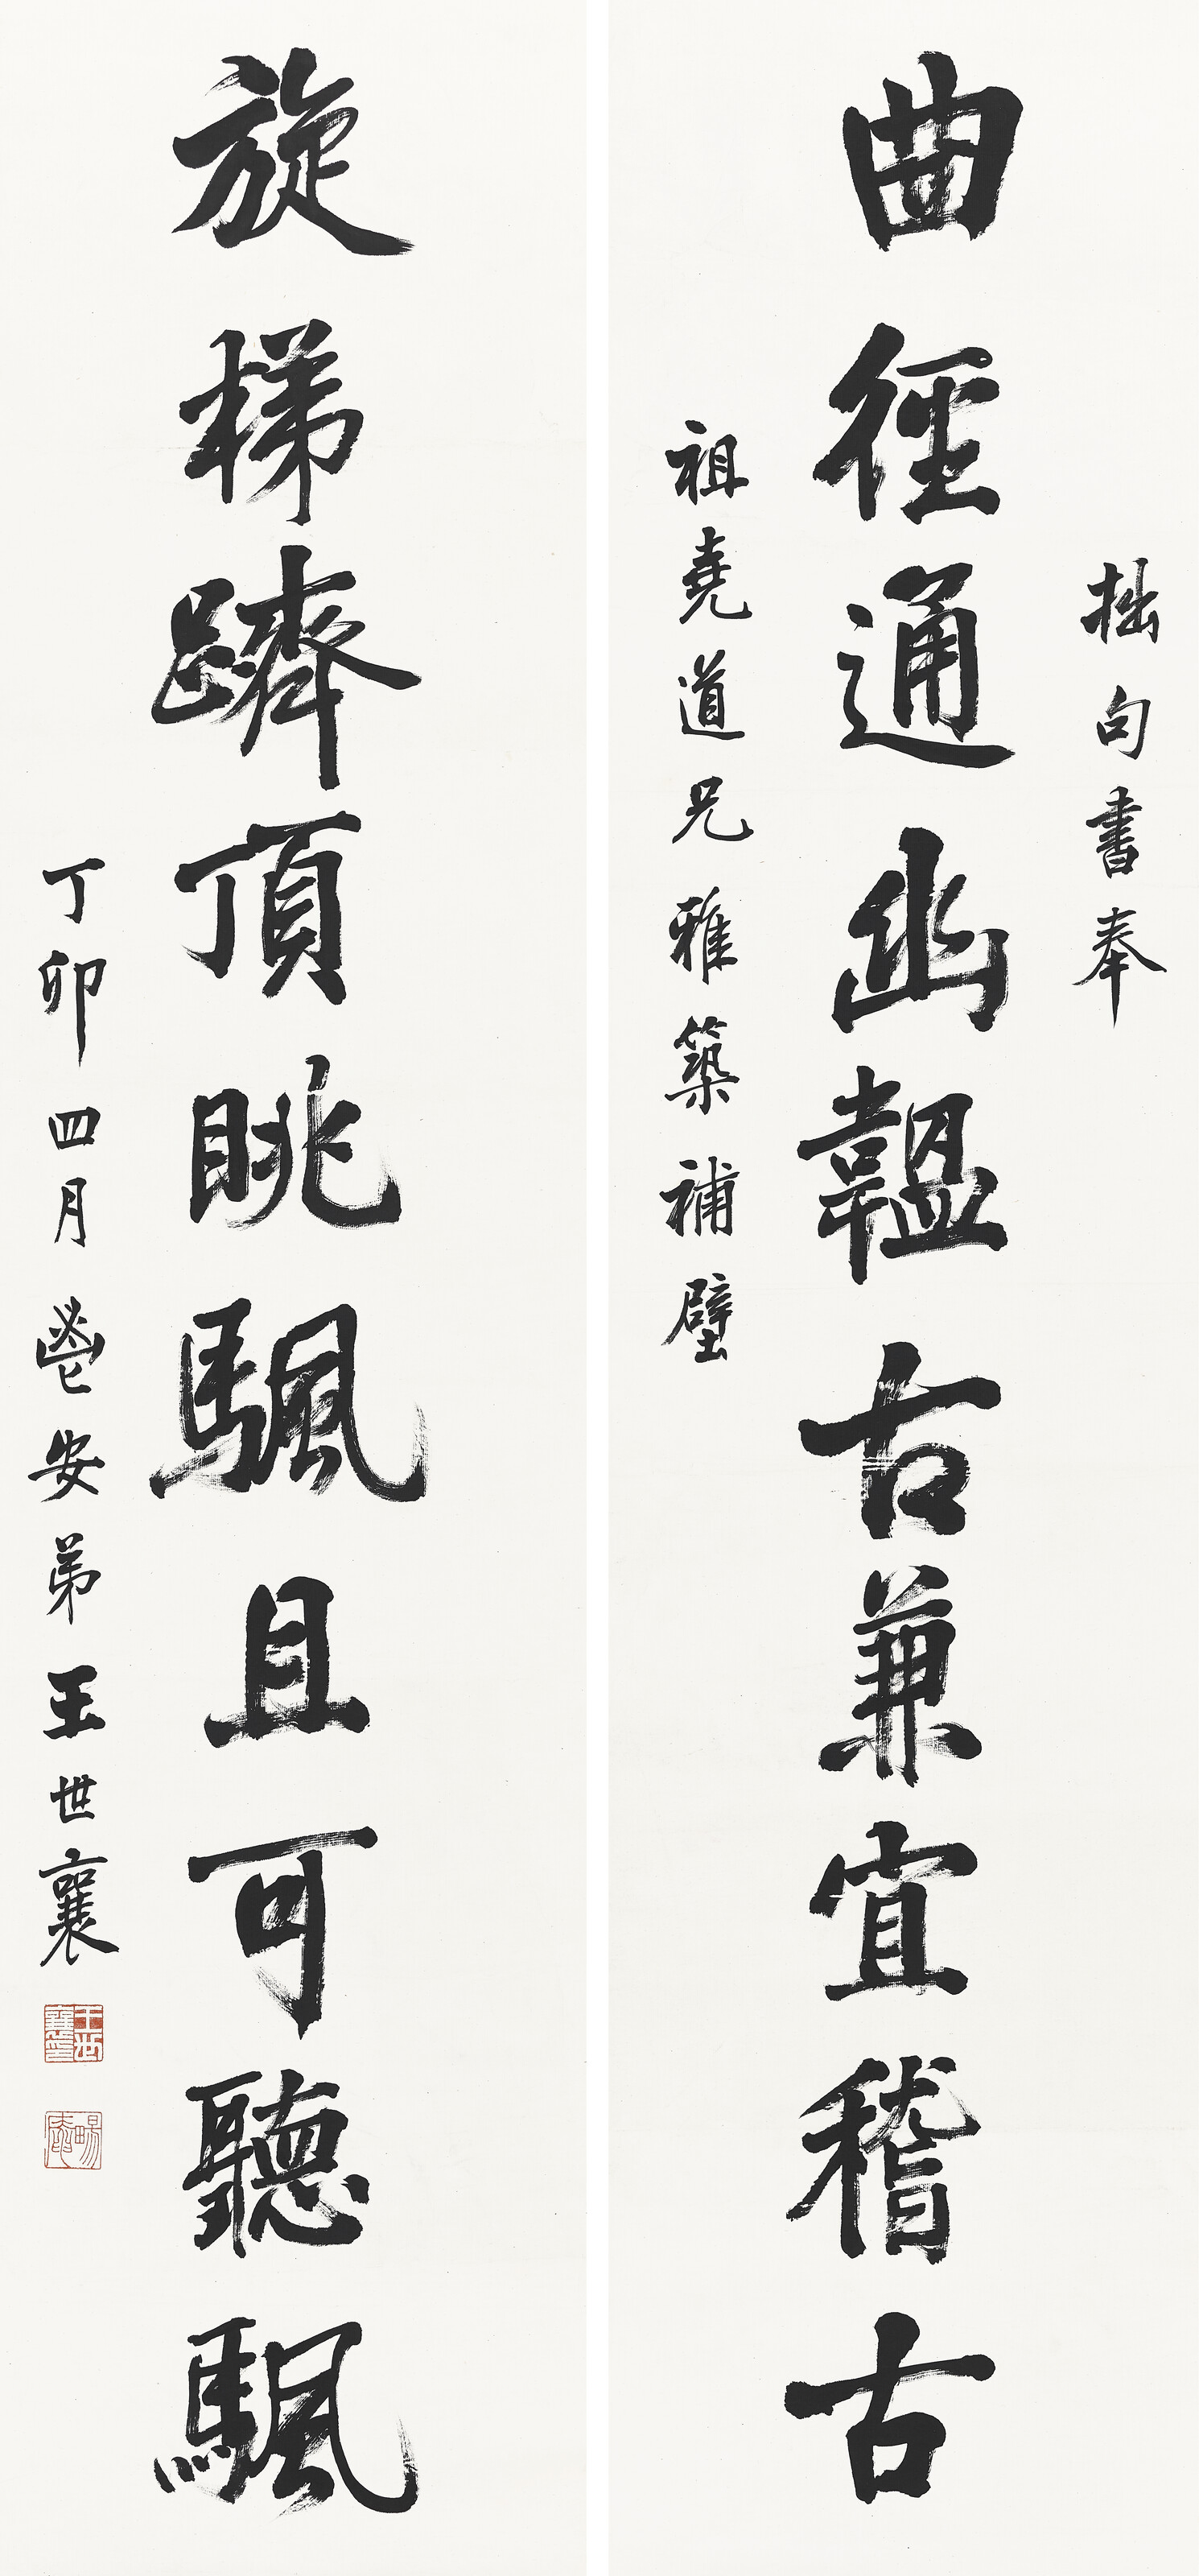 拙句書奉
曲徑通幽韞古兼宜稽古
祖堯道兄雅築補壁
旋梯躋頂眺颿且可聽颿
丁卯四月鬯安弟王世襄
王世襄印